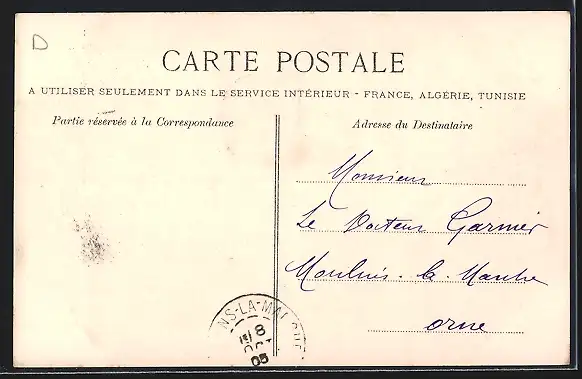 D
CARTE POSTALE
A UTILISER SEULEMENT DANS LE SERVICE INTÉRIEUR - FRANCE, ALGÉRIE, TUNISIE
Partie réservée à la Correspondance
Adresse du Destinataire
Monsieur
Le Docteur Garnier
Moulins-la-Marche
Orne
NS-LA-MA
8
05